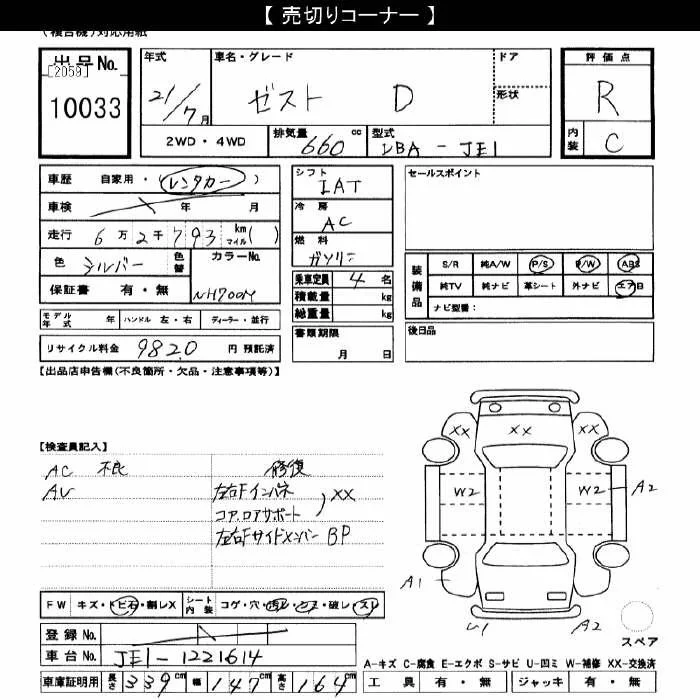 【 売切りコーナー 】
出品No. [2059]
10033
年式 21/7月
車名・グレード ゼスト D
ドア
形状
評価点 R
内装 C
2WD・4WD
排気量 660 cc
型式 DBA-JE1
車歴 自家用・(レンタカー)
車検 年 月
走行 6万2千793 km マイル( )
色 シルバー 色替
カラーNo. NH700M
保証書 有・無
シフト IAT
冷房 AC
燃料 ガソリン
乗車定員 4名
積載量 kg
総重量 kg
書類期限
月 日
セールスポイント
装備品
S/R 純A/W P/S P/W ABS
純TV 純ナビ 革シート 外ナビ エアB
ナビ型番:
後日品
モデル年式 年 ハンドル 左・右 ディーラー・並行
リサイクル料金 9820 円 預託済
【出品店申告欄(不良箇所・欠品・注意事項等)】
【検査員記入】
AC 不良 修復
AV 左右Fインパネ
コア.ロアサポート XX
左右Fサイドメンバー BP
XX XX XX
W2 W2 A2
A1
U1 A2
スペア
FW キズ・トビ石・割レX シート内装 コゲ・穴・汚レ・シミ・破レ・スレ
登録No.
車台No. JE1-1221614
車庫証明用 長さ 339cm 幅 147cm 高さ 164cm
A-キズ C-腐食 E-エクボ S-サビ U-凹ミ W-補修 XX-交換済
工具 有・無 ジャッキ 有・無